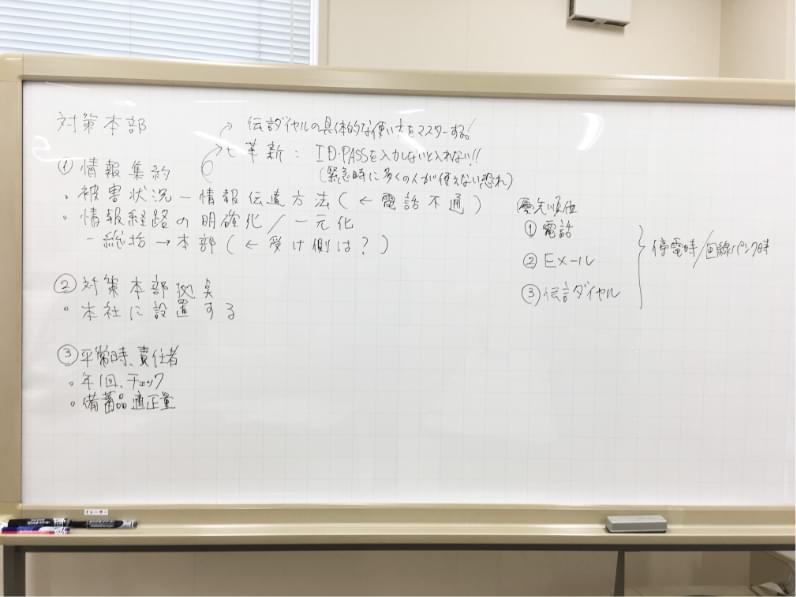 対策本部
→ 伝言ダイヤルの具体的な使い方をマスターする!
革新: ID・PASSを入力しないと入れない!!
(緊急時に多くの人が使えない恐れ)
① 情報集約
・被害状況 ー 情報伝達方法 (← 電話不通)
・情報経路の明確化/一元化
ー総括 → 本部 (← 受け側は?)
② 対策本部拠点
・本社に設置する
③ 平常時、責任者
・年1回、チェック
・備蓄品適正量
優先順位
① 電話
② Eメール
③ 伝言ダイヤル
停電時/回線パンク時